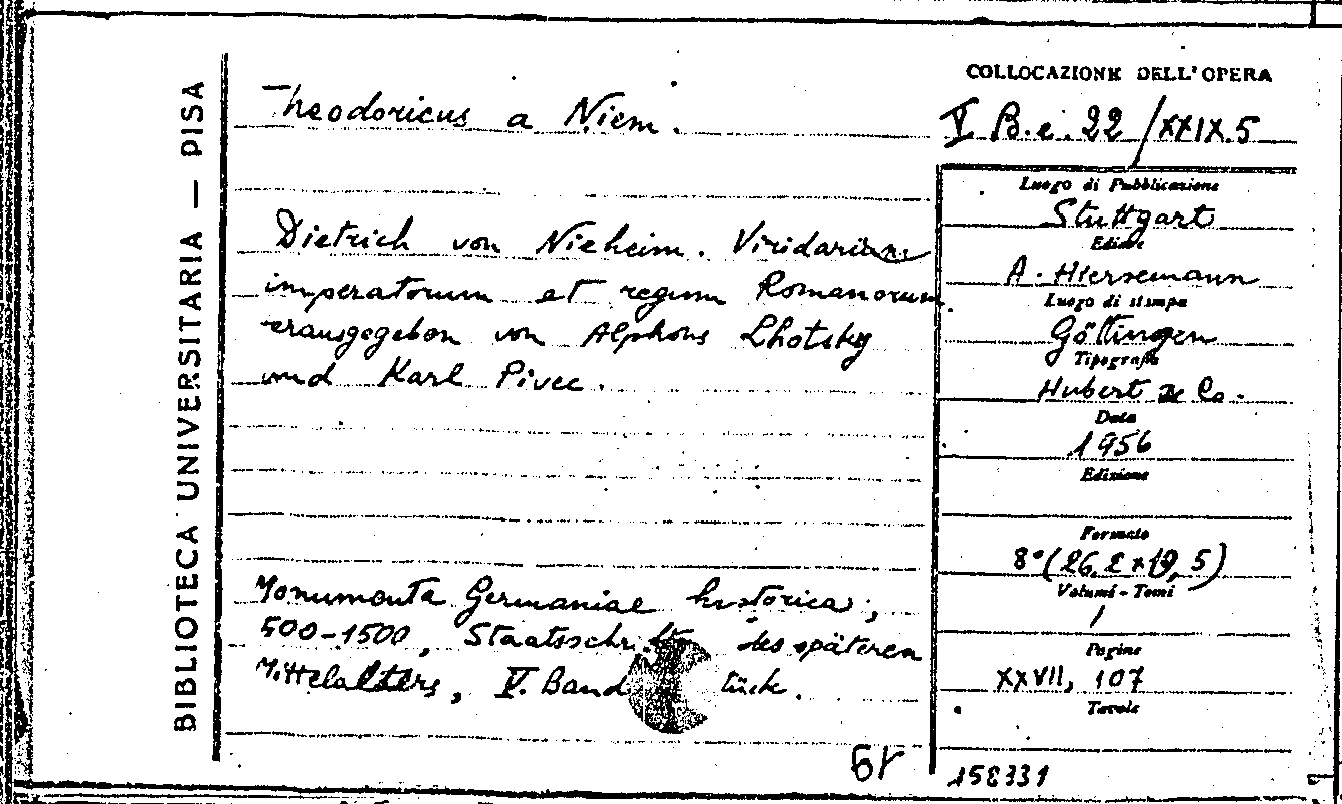 BIBLIOTECA UNIVERSITARIA — PISA
Theodoricus a Niem.
Dietrich von Nieheim. Viridarium
imperatorum et regum Romanorum
erausgegeben von Alphons Lhotsky
und Karl Pivec.
Monumenta Germaniae historica;
500-1500, Staatsschriften des späteren
Mittelalters, V. Band tück.
COLLOCAZIONE DELL'OPERA
V B.e.22/XXIX.5
Luogo di Pubblicazione
Stuttgart
Editore
A. Hiersemann
Luogo di stampa
Göttingen
Tipografia
Hubert & Co.
Data
1956
Edizione
Formato
8° (26,2x19,5)
Volumi - Tomi
1
Pagine
XXVII, 107
Tavole
158331